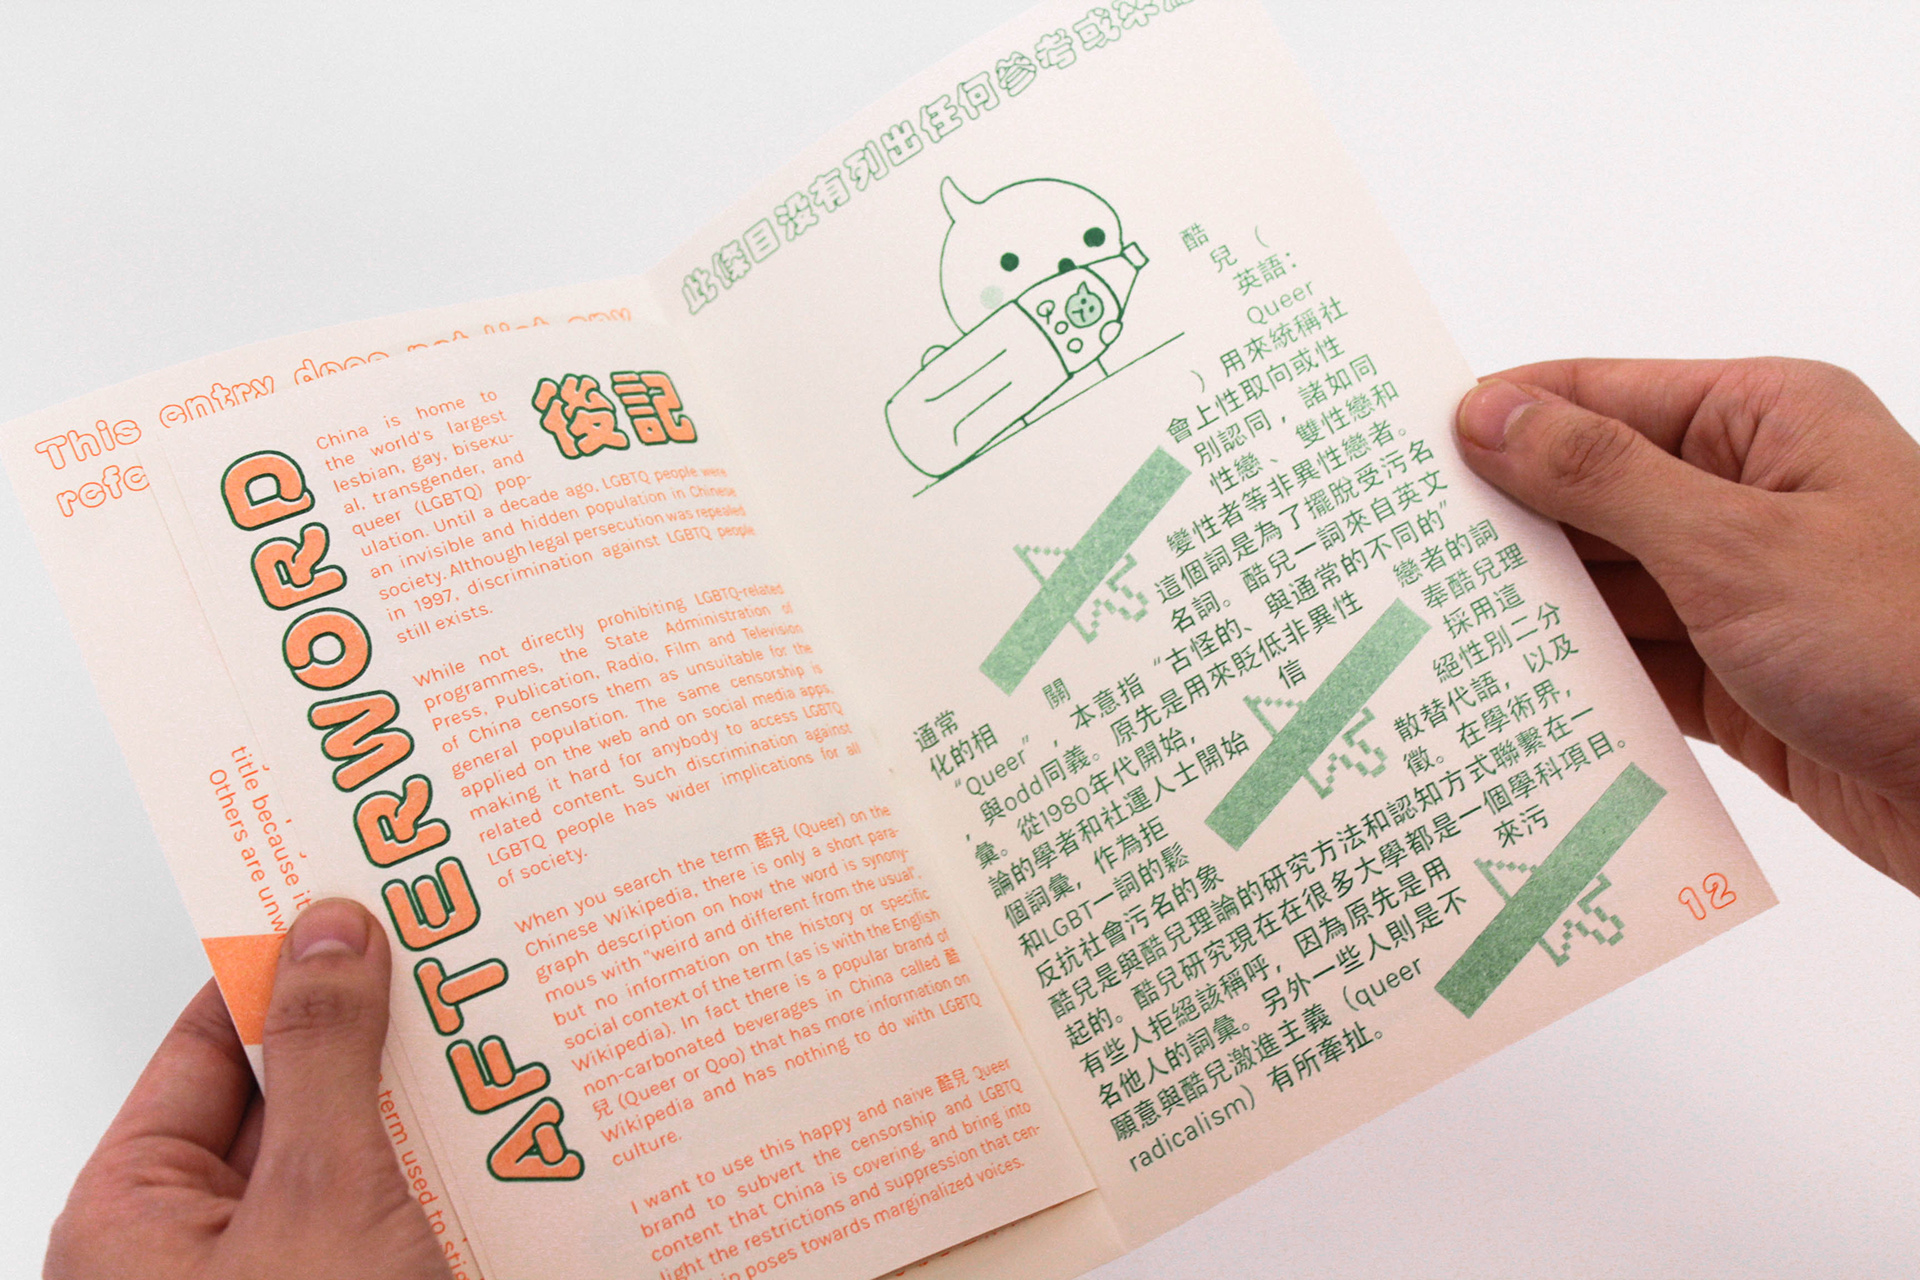 This entry does not list any
refe
title because it
Others are unw
term used to stig
AFTERWORD
後記
China is home to
the world's largest
lesbian, gay, bisexu-
al, transgender, and
queer (LGBTQ) pop-
ulation. Until a decade ago, LGBTQ people were
an invisible and hidden population in Chinese
society. Although legal persecution was repealed
in 1997, discrimination against LGBTQ people
still exists.
While not directly prohibiting LGBTQ-related
programmes, the State Administration of
Press, Publication, Radio, Film and Television
of China censors them as unsuitable for the
general population. The same censorship is
applied on the web and on social media apps,
making it hard for anybody to access LGBTQ
related content. Such discrimination against
LGBTQ people has wider implications for all
of society.
When you search the term 酷兒 (Queer) on the
Chinese Wikipedia, there is only a short para-
graph description on how the word is synony-
mous with "weird and different from the usual",
but no information on the history or specific
social context of the term (as is with the English
Wikipedia). In fact there is a popular brand of
non-carbonated beverages in China called 酷
兒 (Queer or Qoo) that has more information on
Wikipedia and has nothing to do with LGBTQ
culture.
I want to use this happy and naive 酷兒 Queer
brand to subvert the censorship and LGBTQ
content that China is covering, and bring into
light the restrictions and suppression that cen-
ip poses towards marginalized voices.
此條目没有列出任何參考或來源
酷
兒 (
英語:
Queer
) 用來統稱社
會上性取向或性
別認同，諸如同
性戀、雙性戀和
變性者等非異性戀者。
這個詞是為了擺脫受污名
名詞。酷兒一詞來自英文
通常 關 本意指 "古怪的、與通常的不同的"
化的相
"Queer"，
，與odd同義。原先是用來貶低非異性 戀者的詞
彙。從1980年代開始， 信 奉酷兒理
論的學者和社運人士開始 採用這
個詞彙，作為拒 絕性別二分
和LGBT一詞的鬆 散替代語，以及
反抗社會污名的象 徵。在學術界，
酷兒是與酷兒理論的研究方法和認知方式聯繫在一
起的。酷兒研究現在在很多大學都是一個學科項目。
有些人拒絕該稱呼，因為原先是用 來污
名他人的詞彙。另外一些人則是不
願意與酷兒激進主義（queer
radicalism）有所牽扯。
12